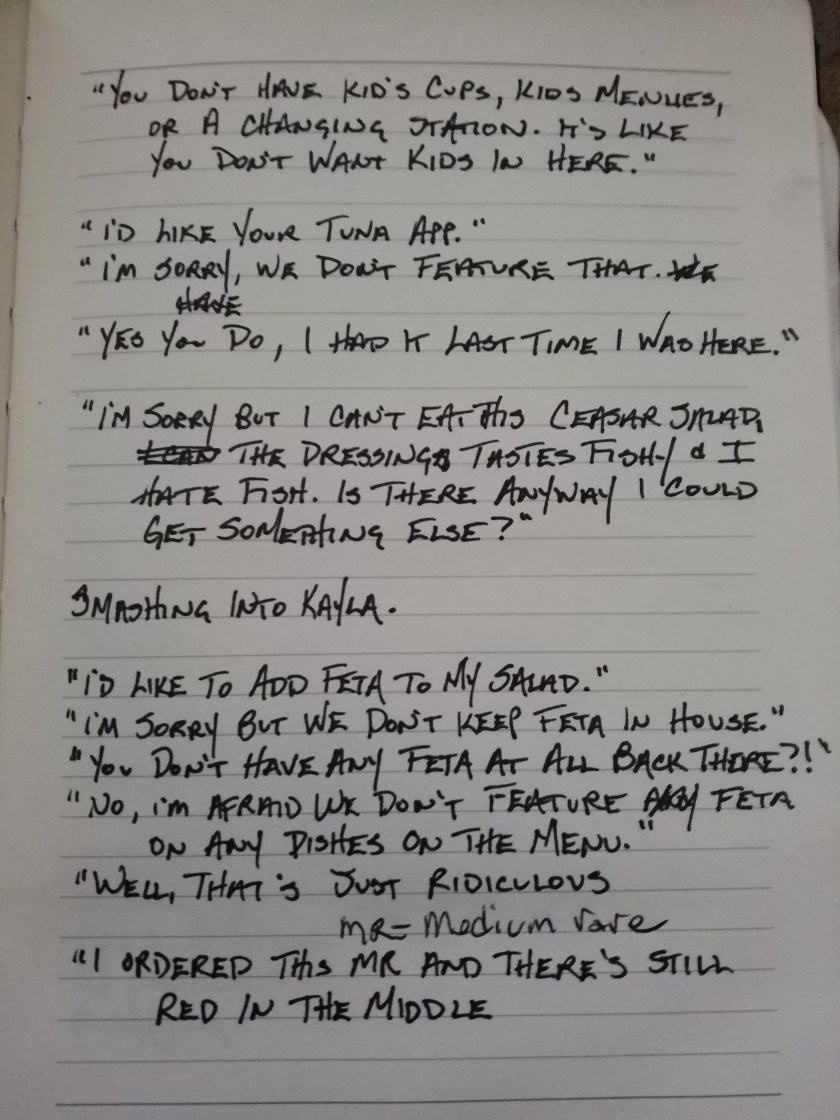 "You Don't Have Kid's Cups, Kids Menues,
or a changing station. It's like
you don't want kids in here."
"I'd like your tuna app."
"I'm sorry, we don't feature that. We
have
"Yes you do, I had it last time I was here."
"I'm sorry but I can't eat this Ceasar salad,
the dressing tastes fishy & I
hate fish. Is there anyway I could
get something else?"
Smashing into Kayla.
"I'd like to add feta to my salad."
"I'm sorry but we don't keep feta in house."
"You don't have any feta at all back there?!"
"No, i'm afraid we don't feature any feta
on any dishes on the menu."
"Well, that's just ridiculous
MR = Medium rare
"I ordered this MR and there's still
red in the middle